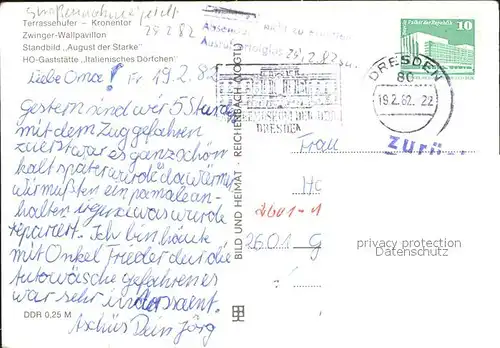 Straßenname fehlt
24 2 82
Terrassenufer – Kronentor
Zwinger-Wallpavillon
Standbild „August der Starke"
HO-Gaststätte „Italienisches Dörfchen"
Liebe Oma! Fr 19.2.82
Gestern sind wir 5 Stund
mit dem Zug gefahren
zuerst war es ganz schön
kalt später wurde da wärmer
wir mußten ein pamale an-
halten irgendwas wurde
repariert. Ich bin heute
mit Onkel Frieder durch die
Autowäsche gefahren es
war sehr inderssant.
tschüs Dein Jörg
DDR 0,25 M
BILD UND HEIMAT · REICHENBACH (VOGTL)
nicht zu ermitteln
24.2.82
DRESDEN
DRESDEN
80
19.2.82. 22
10
Zurück
Frau
2601-1
2601 G
privacy protection
Datenschutz